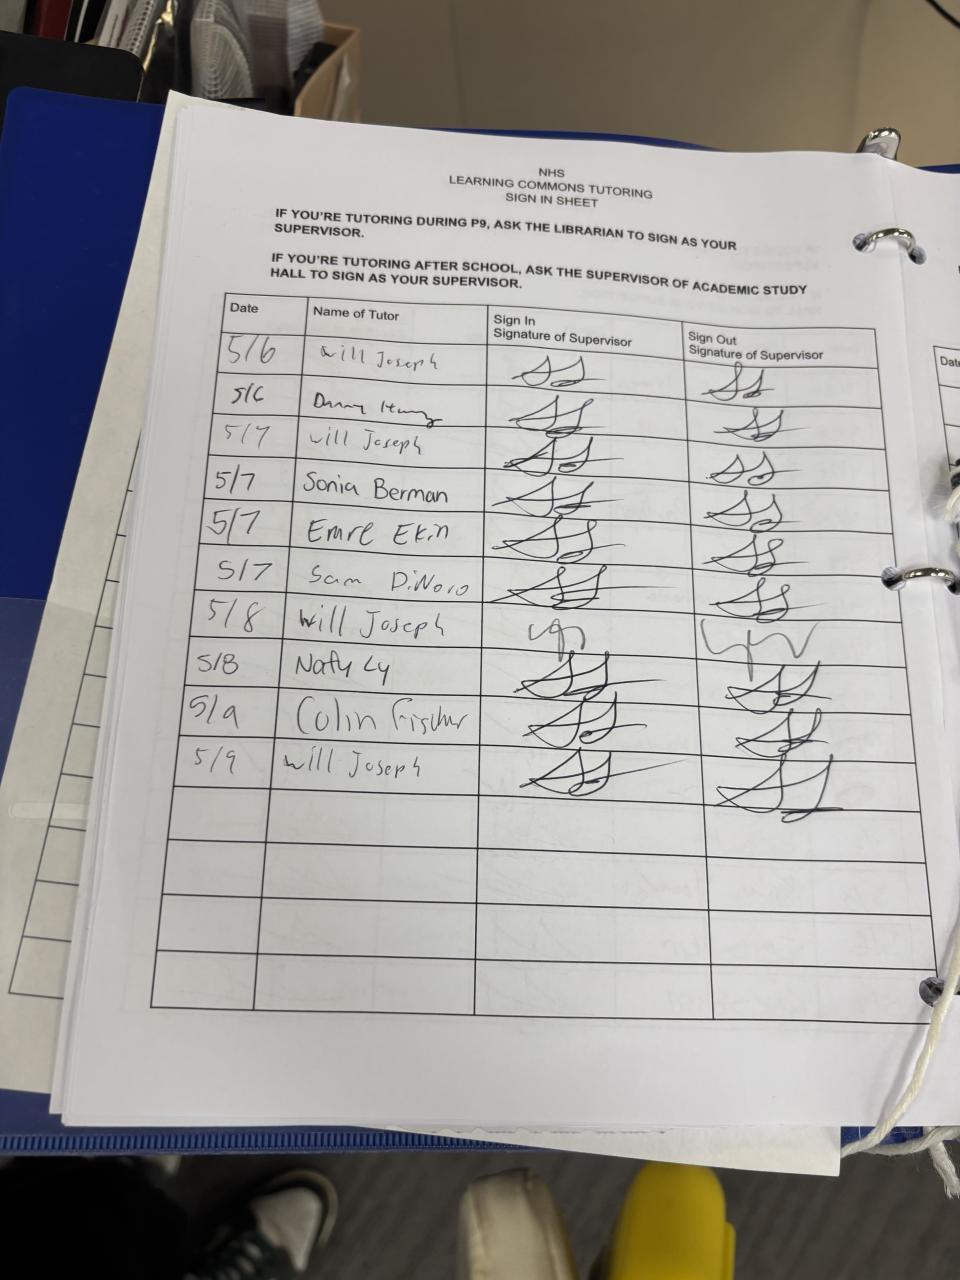 NHS
LEARNING COMMONS TUTORING
SIGN IN SHEET
IF YOU'RE TUTORING DURING P9, ASK THE LIBRARIAN TO SIGN AS YOUR
SUPERVISOR.
IF YOU'RE TUTORING AFTER SCHOOL, ASK THE SUPERVISOR OF ACADEMIC STUDY
HALL TO SIGN AS YOUR SUPERVISOR.
Date Name of Tutor Sign In Sign Out
Signature of Supervisor Signature of Supervisor
5/6 Will Joseph
5/6 Danny
5/7 Will Joseph
5/7 Sonia Berman
5/7 Emre Ekin
5/7 Sam DiNovo
5/8 Will Joseph
5/8 Naty Ly
5/9 Colin Fischer
5/9 Will Joseph